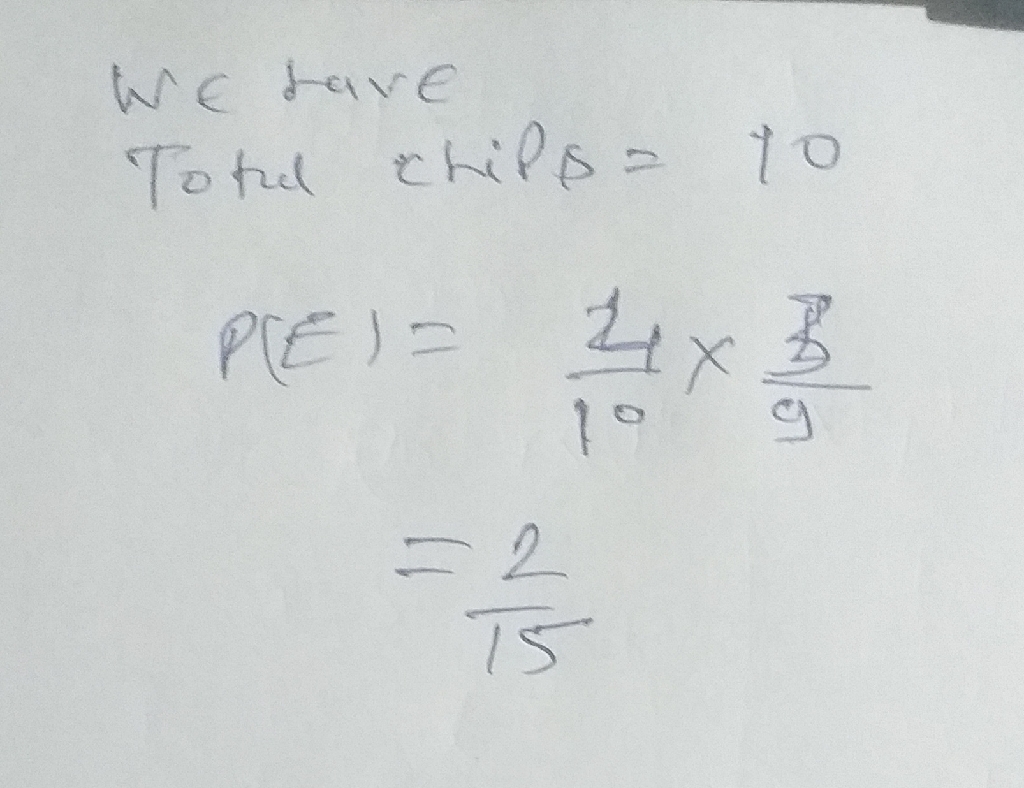 We have
Total chips = 10
P(E) = 4/10 × 3/9
= 2/15